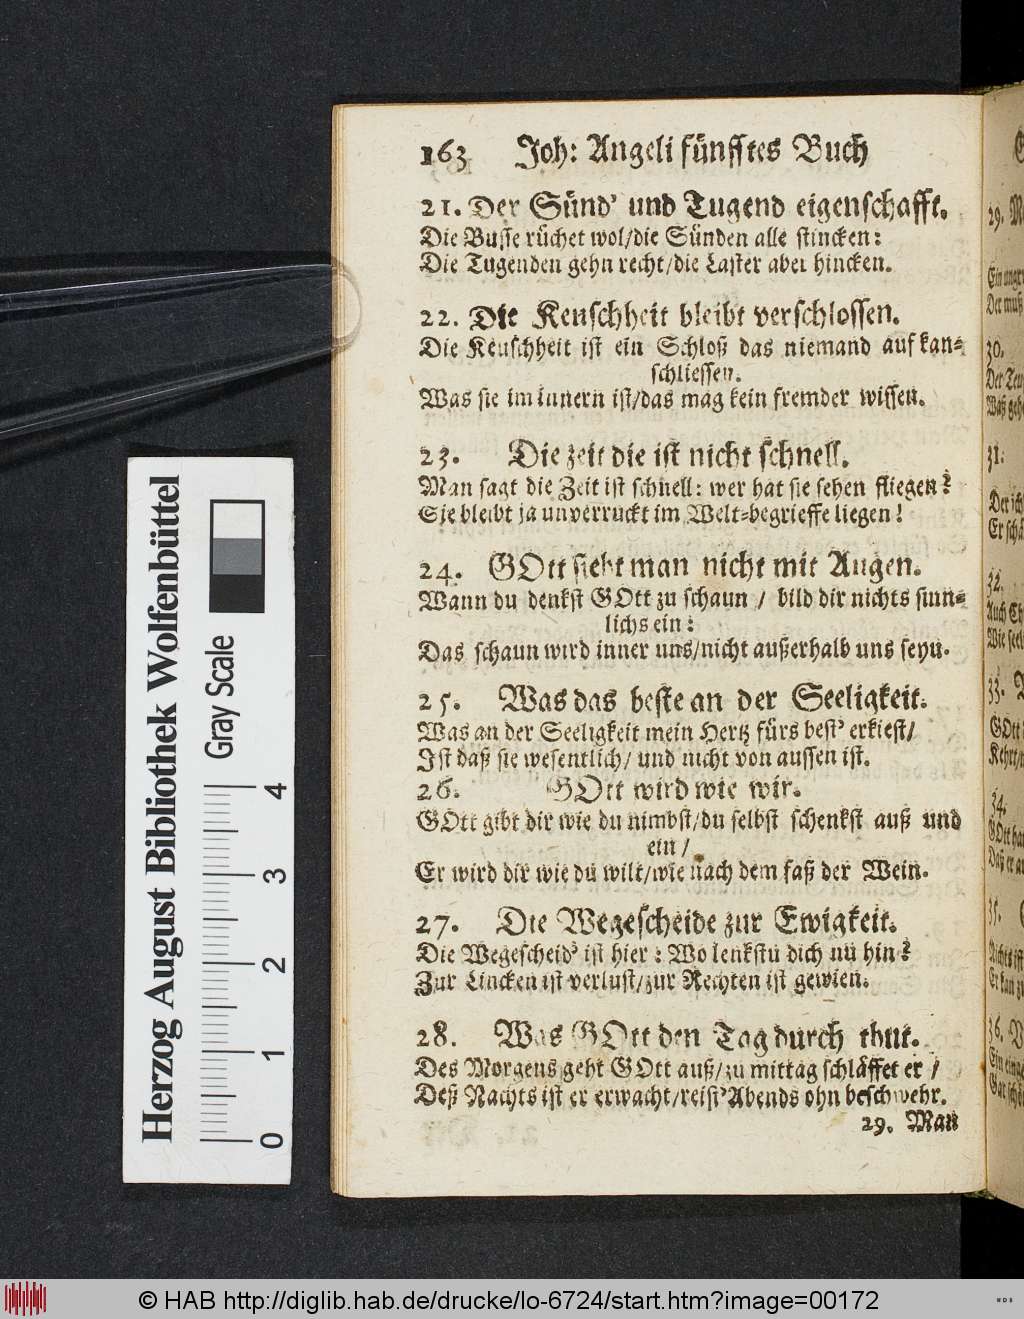 163 Joh: Angeli fünfftes Buch
21. Der Sünd' und Tugend eigenschafft.
Die Busse rüchet wol/die Sünden alle stincken:
Die Tugenden gehn recht/die Laster aber hincken.
22. Die Keuschheit bleibt verschlossen.
Die Keuschheit ist ein Schloß das niemand auf kan=
schliessen.
Was sie im innern ist/das mag kein fremder wissen.
23. Die zeit die ist nicht schnell.
Man sagt die Zeit ist schnell: wer hat sie sehen fliegen?
Sie bleibt ja unverruckt im Welt=begrieffe liegen!
24. GOtt sieht man nicht mit Augen.
Wann du denkst GOtt zu schaun / bild dir nichts sinn=
lichs ein:
Das schaun wird inner uns/nicht außerhalb uns seyn.
25. Was das beste an der Seeligkeit.
Was an der Seeligkeit mein Hertz fürs best' erkiest/
Ist daß sie wesentlich/ und nicht von aussen ist.
26. GOtt wird wie wir.
GOtt gibt dir wie du nimbst/du selbst schenkst auß und
ein/
Er wird dir wie du wilt/wie nach dem faß der Wein.
27. Die Wegescheide zur Ewigkeit.
Die Wegescheid' ist hier: Wo lenkstu dich nu hin?
Zur Lincken ist verlust/zur Rechten ist gewien.
28. Was GOtt den Tag durch thut.
Des Morgens geht GOtt auß/zu mittag schläffet er /
Deß Nachts ist er erwacht/reist' Abends ohn beschwehr.
29. Man
Herzog August Bibliothek Wolfenbüttel
Gray Scale
0 1 2 3 4
29.
30.
31.
32.
33.
34.
35.
36.
© HAB http://diglib.hab.de/drucke/lo-6724/start.htm?image=00172